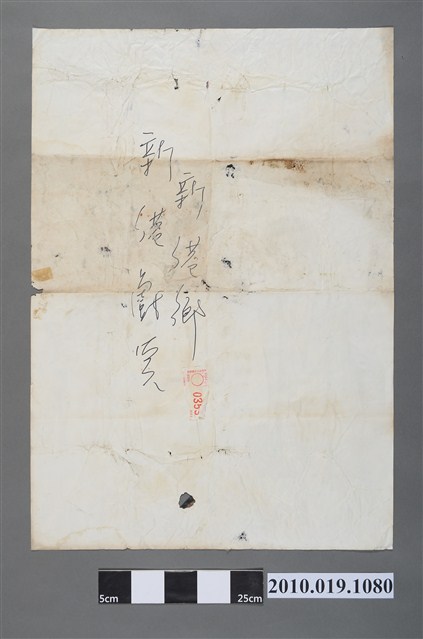 新港鄉
新港獻買
035
5cm
25cm
2010.019.1080